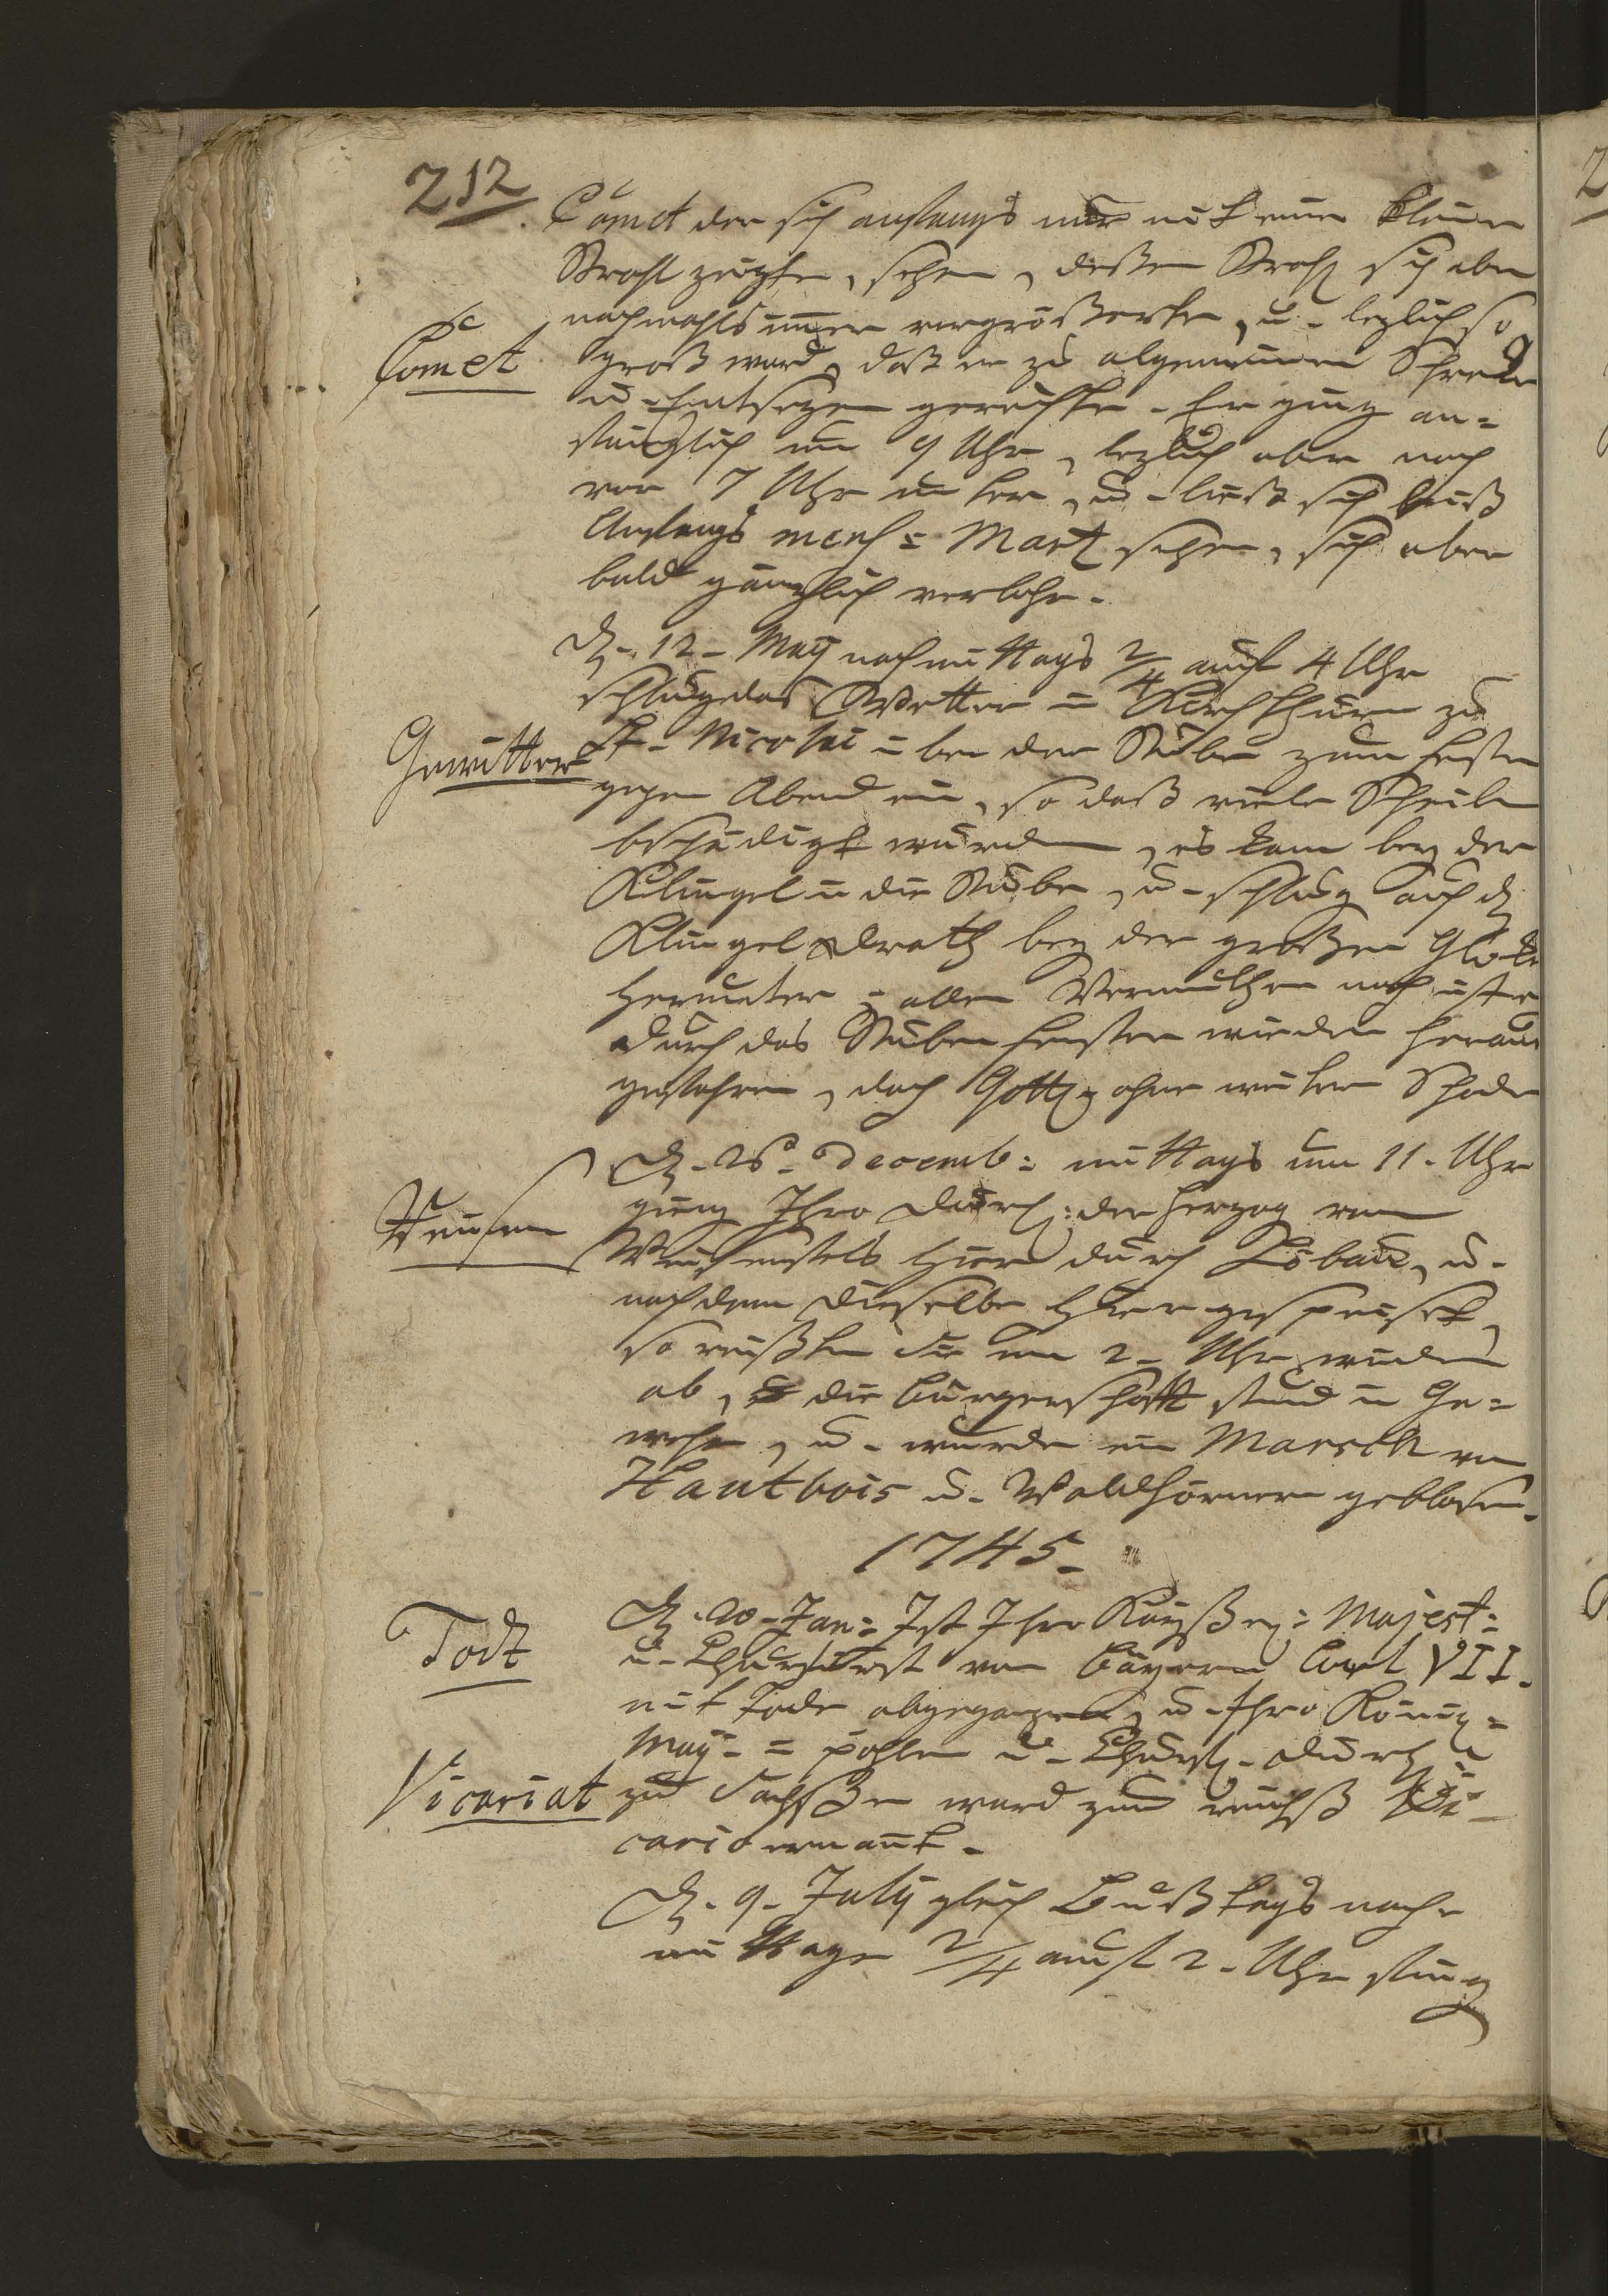 212
Comet der sich anfangs nur mit einen kleinen
Strahl zeigte, sehen, deßen Strahl sich aber
nachmahls immer vergrößerte, u. lezlich so
Comet
groß ward, daß er zu algemeinen Schreken
u. Entsezen gereichte. Er ging an-
fänglich um 9 Uhr, lezlich aber noch
vor 7 Uhr unter, u. ließ sich biß
Anfangs mens: Mart sehen, sich aber
bald gänzlich verlohr.
D. 12. Maij nachmittags 2/4 auf 4 Uhr
schlug das Wetter in Kirchthurm zu
Gewitter
St. Nicolai in der Stube zum Fenster
gegen Abend ein, so daß viele Scheiben
beschädigt wurden, es kam bey der
Klingel in die Stube, u. schlug auch d
Klingel drath bey der großen Gloke
herunter, allen Vermuthen nach ist er
durch das Stuben fenster wieder heraus
gefahren, doch Gottl. ohne weitern Schaden
D. 26. Decemb: mittags um 11. Uhr
ging Ihro Durchl: der Herzog von
Weißenfels hier durch Löbau, u.
nachdem dieselbe hier gespeiset,
so reißten Sie um 2. Uhr wieder
ab, die Bürgerschafft stund in Ge-
wehr, u. wurde ein March von
Hautbois u. Waldhörnern geblasen.
1745.
Todt
D. 20. Jan: Ist Ihro Kayßerl: Majest:
u. Churfürst von Bayern Carl VII.
mit Tode abgegangen, u. Ihro Königl:
Maij. in Pohlen u. Churfl. Durchl
Vicariat
zu Sachßen ward zum reichß Vi-
cario ernant.
D. 9. July gleich Bußtags nach-
mittage 2/4 auf 2. Uhr fing